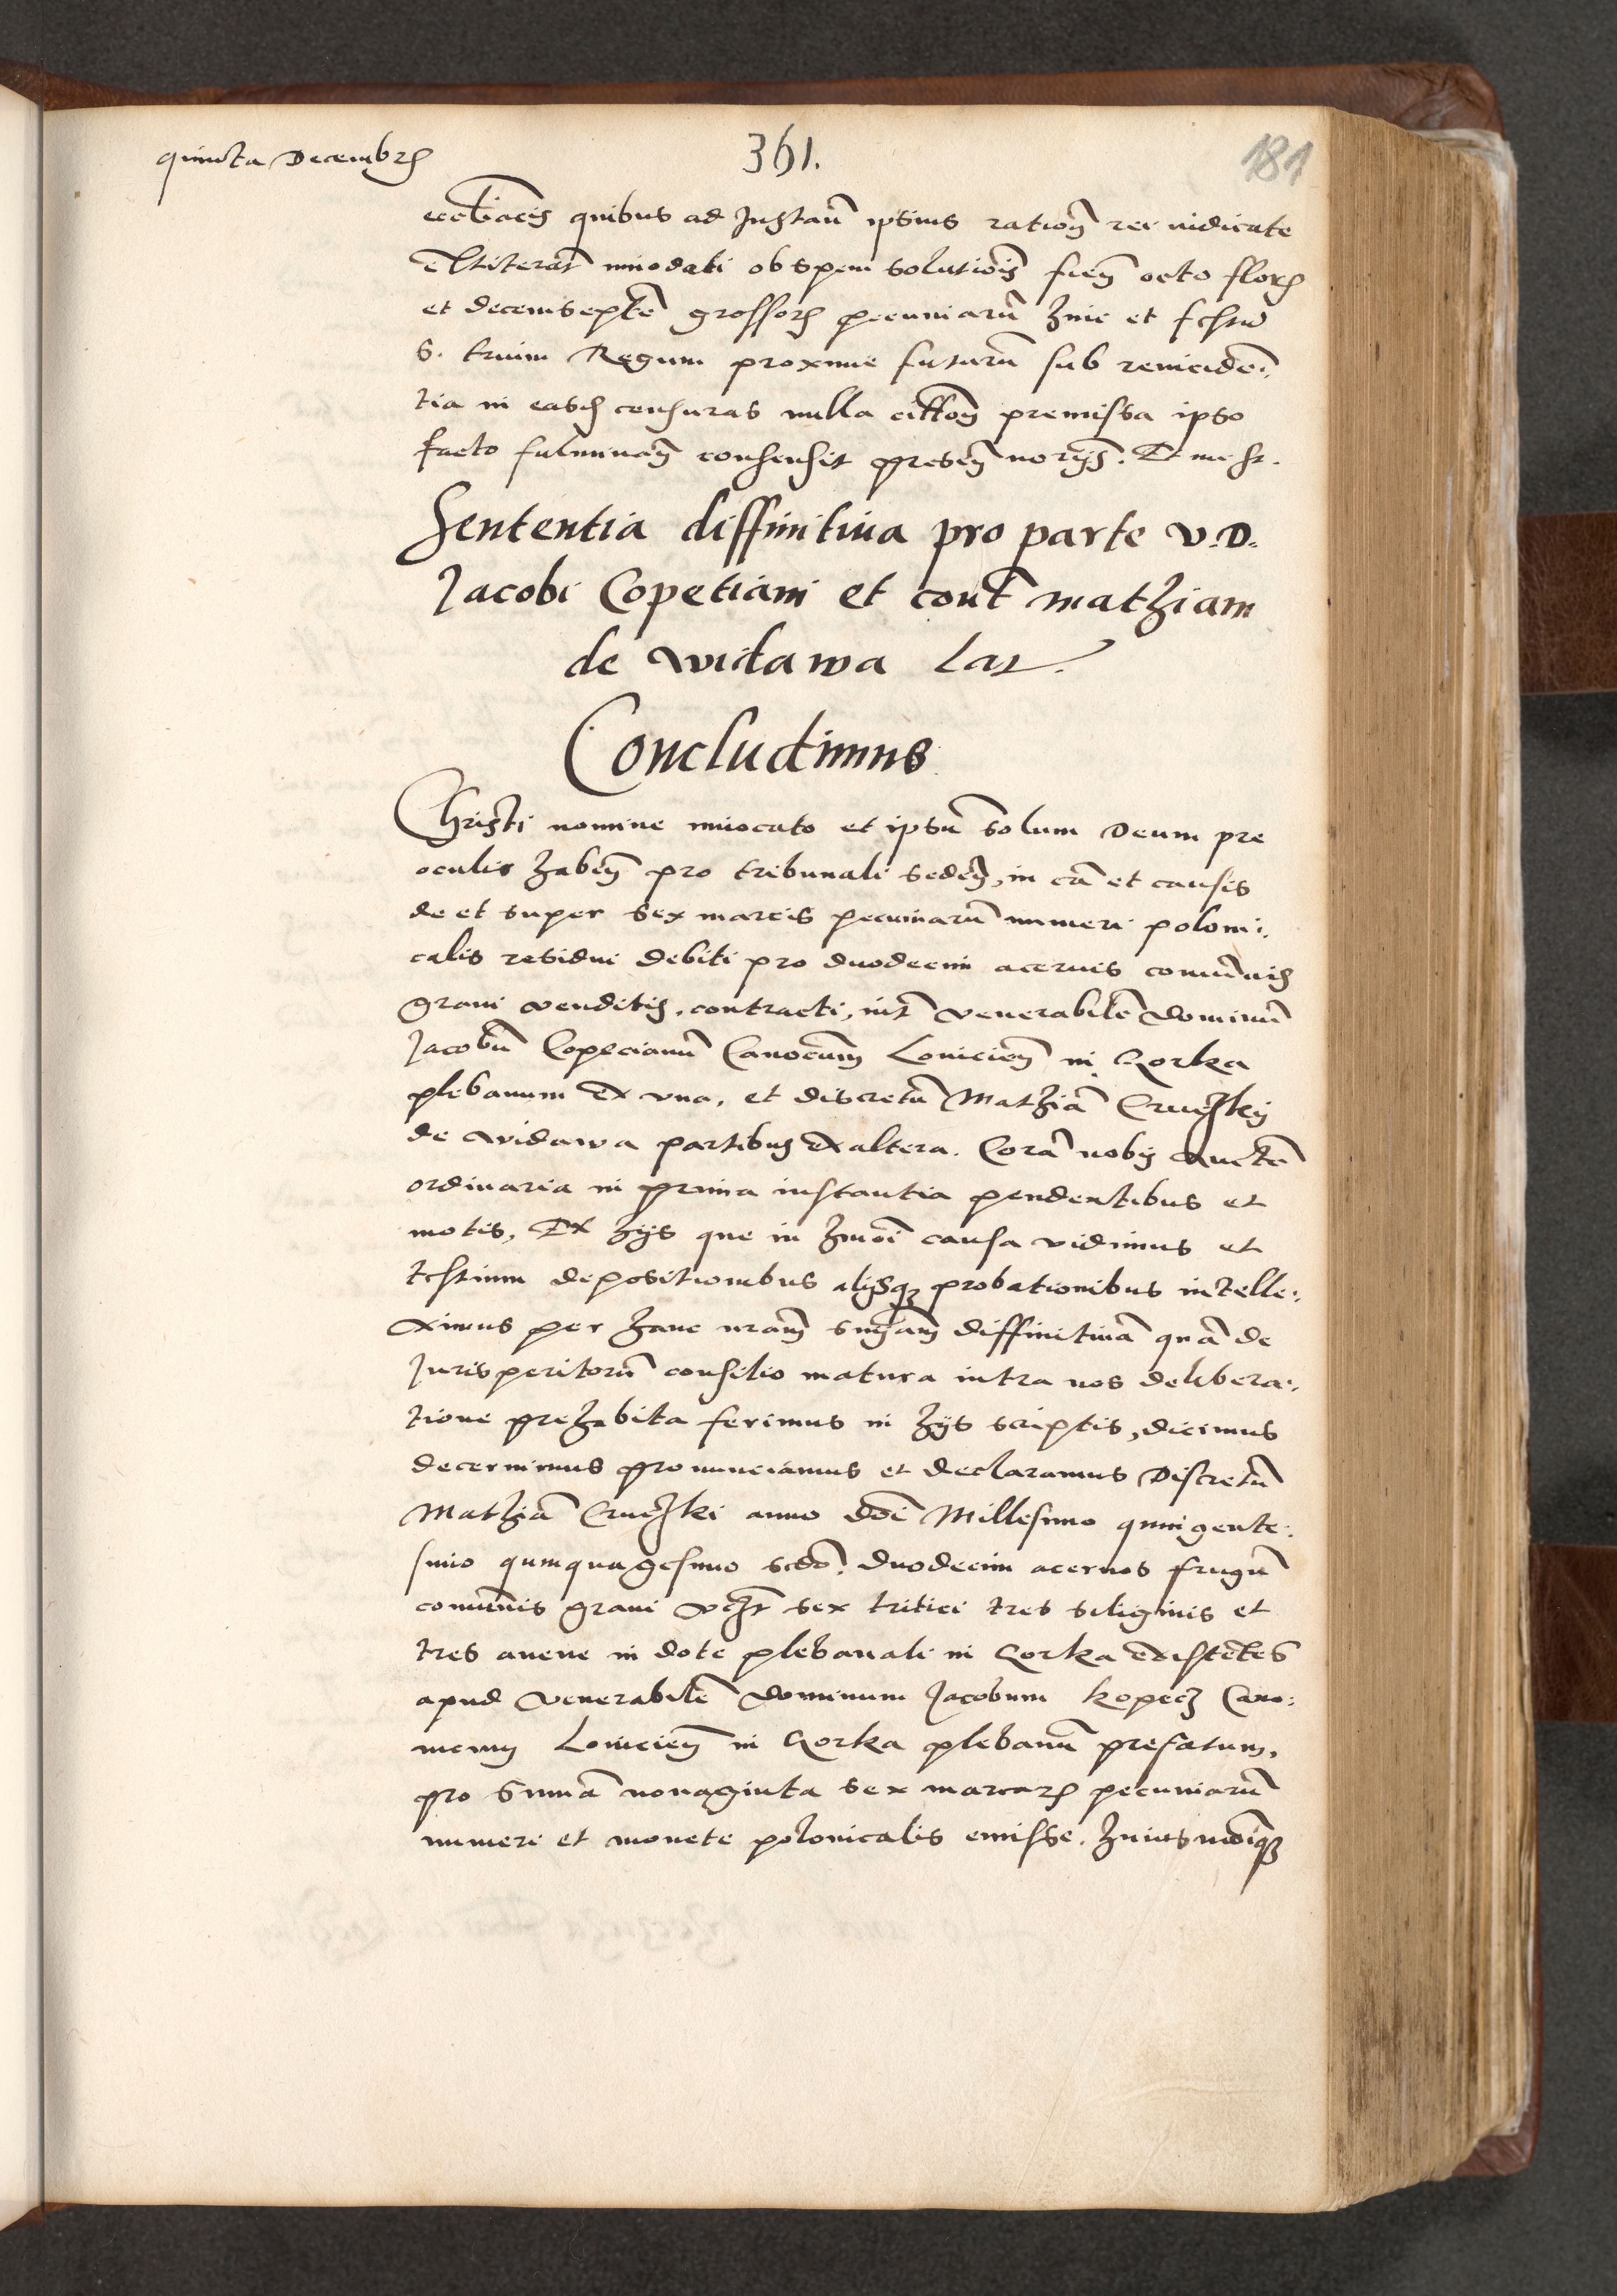 quinta Decembr
361.
181
ecclìacis quibus ad Instan̄ ipsius ration̄ rei iudicate
extiterat innodati ob spem solutiois̄ fien̄ octo flor
et decemseptē grossor pecuniarū hinc et festū
S. trium Regum proxime futurū sub reincidē:
tia in easd censuras nulla citton̄ premissa ipso
facto fulminan̄ consensit presen̄ norijs. Et me st.
Sententia diffinitiua pro parte V. D.
Jacobi Copetiani et cont̄ mathiam
de widawa Lat.
Concludimus
Christi nomine inuocato et ipsū solum Deum pre
oculis haben̄ pro tribunali seden̄, in cā et causis
de et super sex marcis pecuniarū numeri poloni:
calis residui debiti pro duodecim aceruis comunis
grani venditis, contracti, int̄ venerabilē dominū
Jacobū Copecianū Canocum̄ Louicien̄ in Gorka
plebanum ex vna, et discretū Mathiā
de widawa partibus ex altera. Corā nobis Auctē
ordinaria in prima instantia pendentibus et
motis, Ex hijs que in hmoi causa vidimus et
testium depositionibus alijsq probationibus intelle:
ximus per hanc nram̄ snīam̄ diffinitiuā quā de
Jurisperitorū consilio matura intra nos delibera:
tione prehabita ferimus in hijs scriptis, dicimus
decernimus pronunciamus et declaramus Discretū
Mathiā anno dōi Millesimo quingente:
simo quinquagesimo scdo. duodecim aceruos frugū
comunis grani vcꝫt sex tritici tres siliginis et
tres auene in dote plebanali in Gorka existētes
apud Venerabilē dominum Jacobum Kopecz Cano:
nicum Louicien̄ in Gorka plebanū prefatum,
pro summā nonaginta sex marcar pecuniarū
numeri et monete polonicalis emisse. huiusmōiq